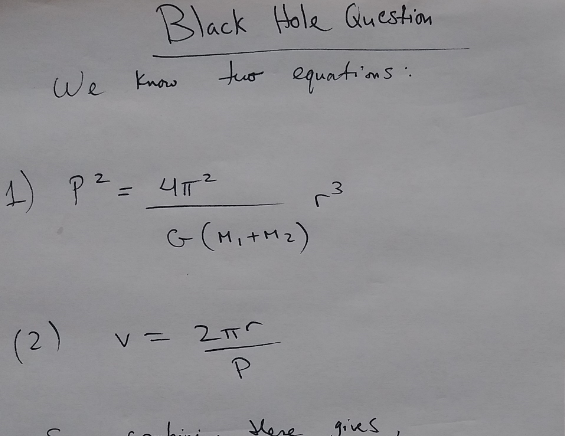 Black Hole Question
We know two equations:
1) P² = 4π² / G(M₁+M₂) r³
(2) v = 2πr / P
these gives,